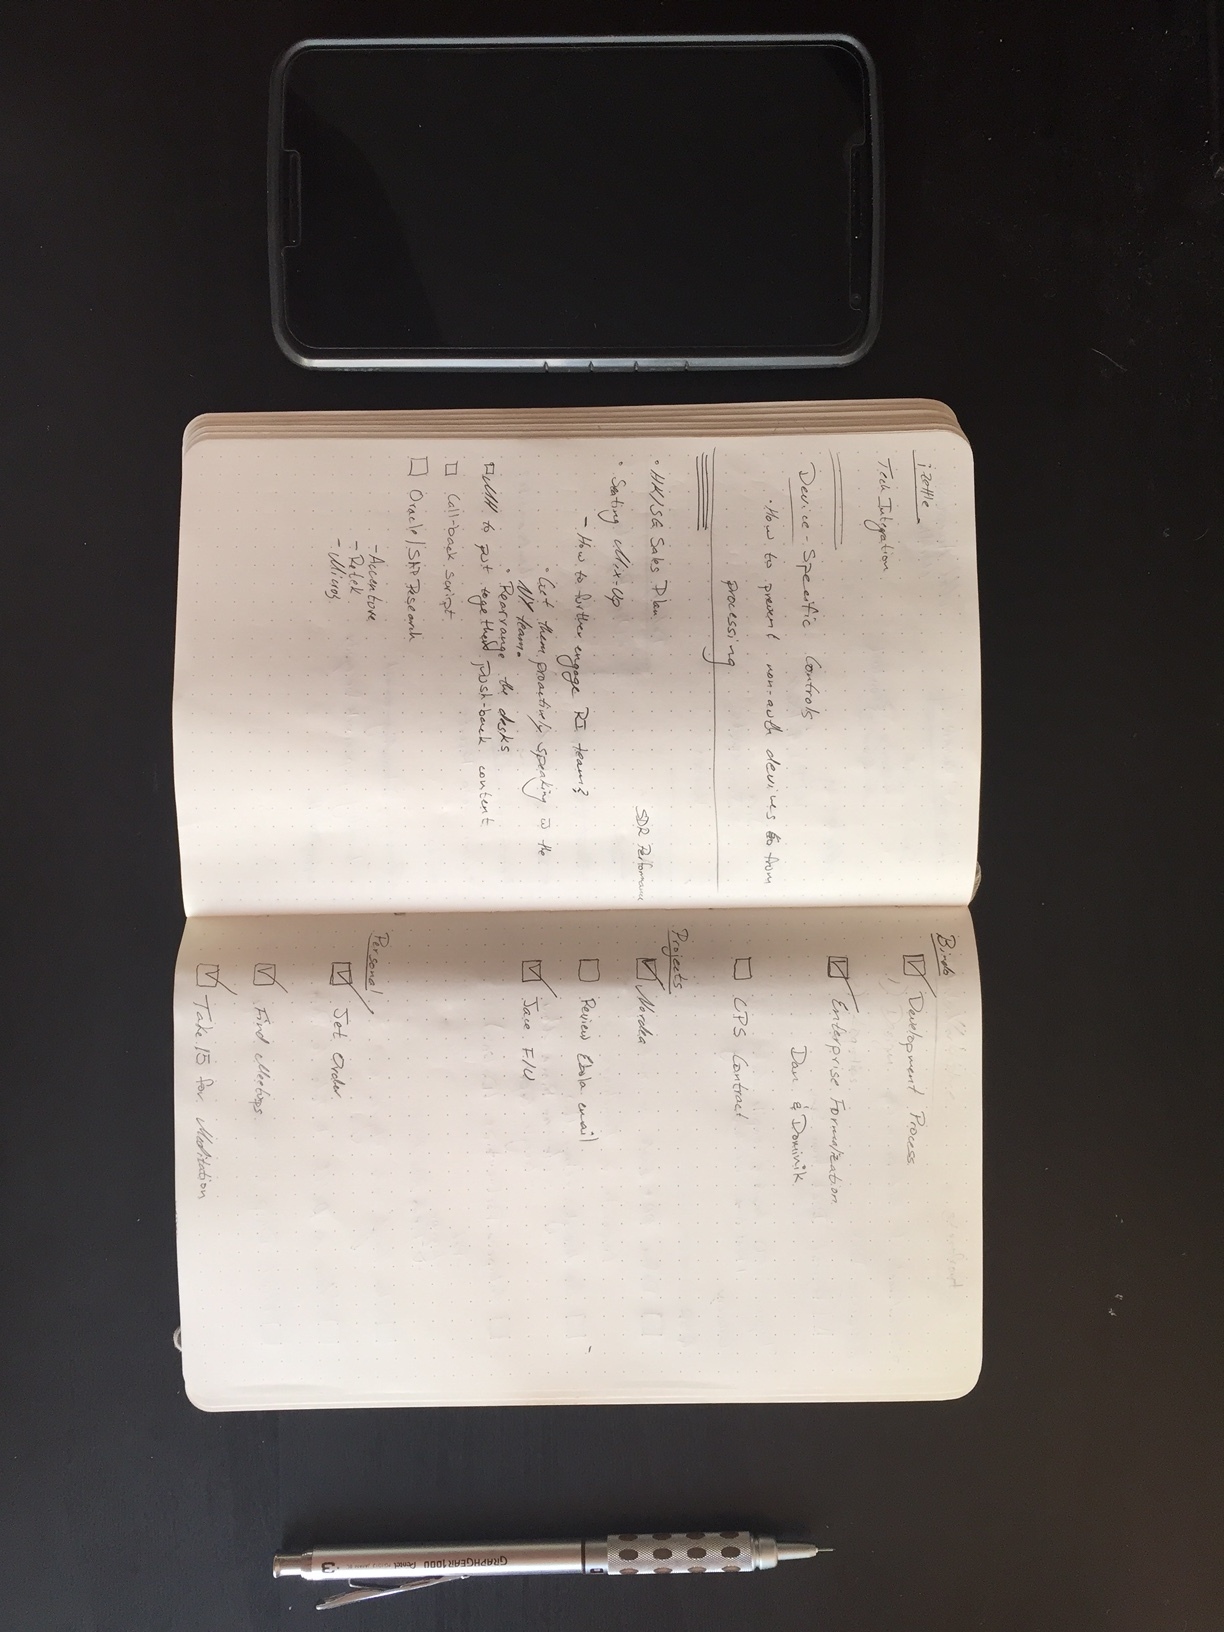 iZettle
Tech Integration
Device-Specific Controls
• How to prevent non-auth devices from
processing
• HK/SG Sales Plan
SDR Performance
• Seating Mix-Up
- How to further engage RI team?
• Get them proactively speaking w the
NY team.
• Rearrange the desks
to put together push-back content
Call-back script
Oracle/SAP Research
- Accenture
- Retek
- Micros
Bindo
Development Process
Enterprise Formalization
Dan & Dominik
UPS Contract
Projects
Nordea
Review Ebola email
Jace F/U
Personal
Jet Order
Find Meetups
Take 15 for Meditation
GRAPHGEAR 1000 Pentel
3